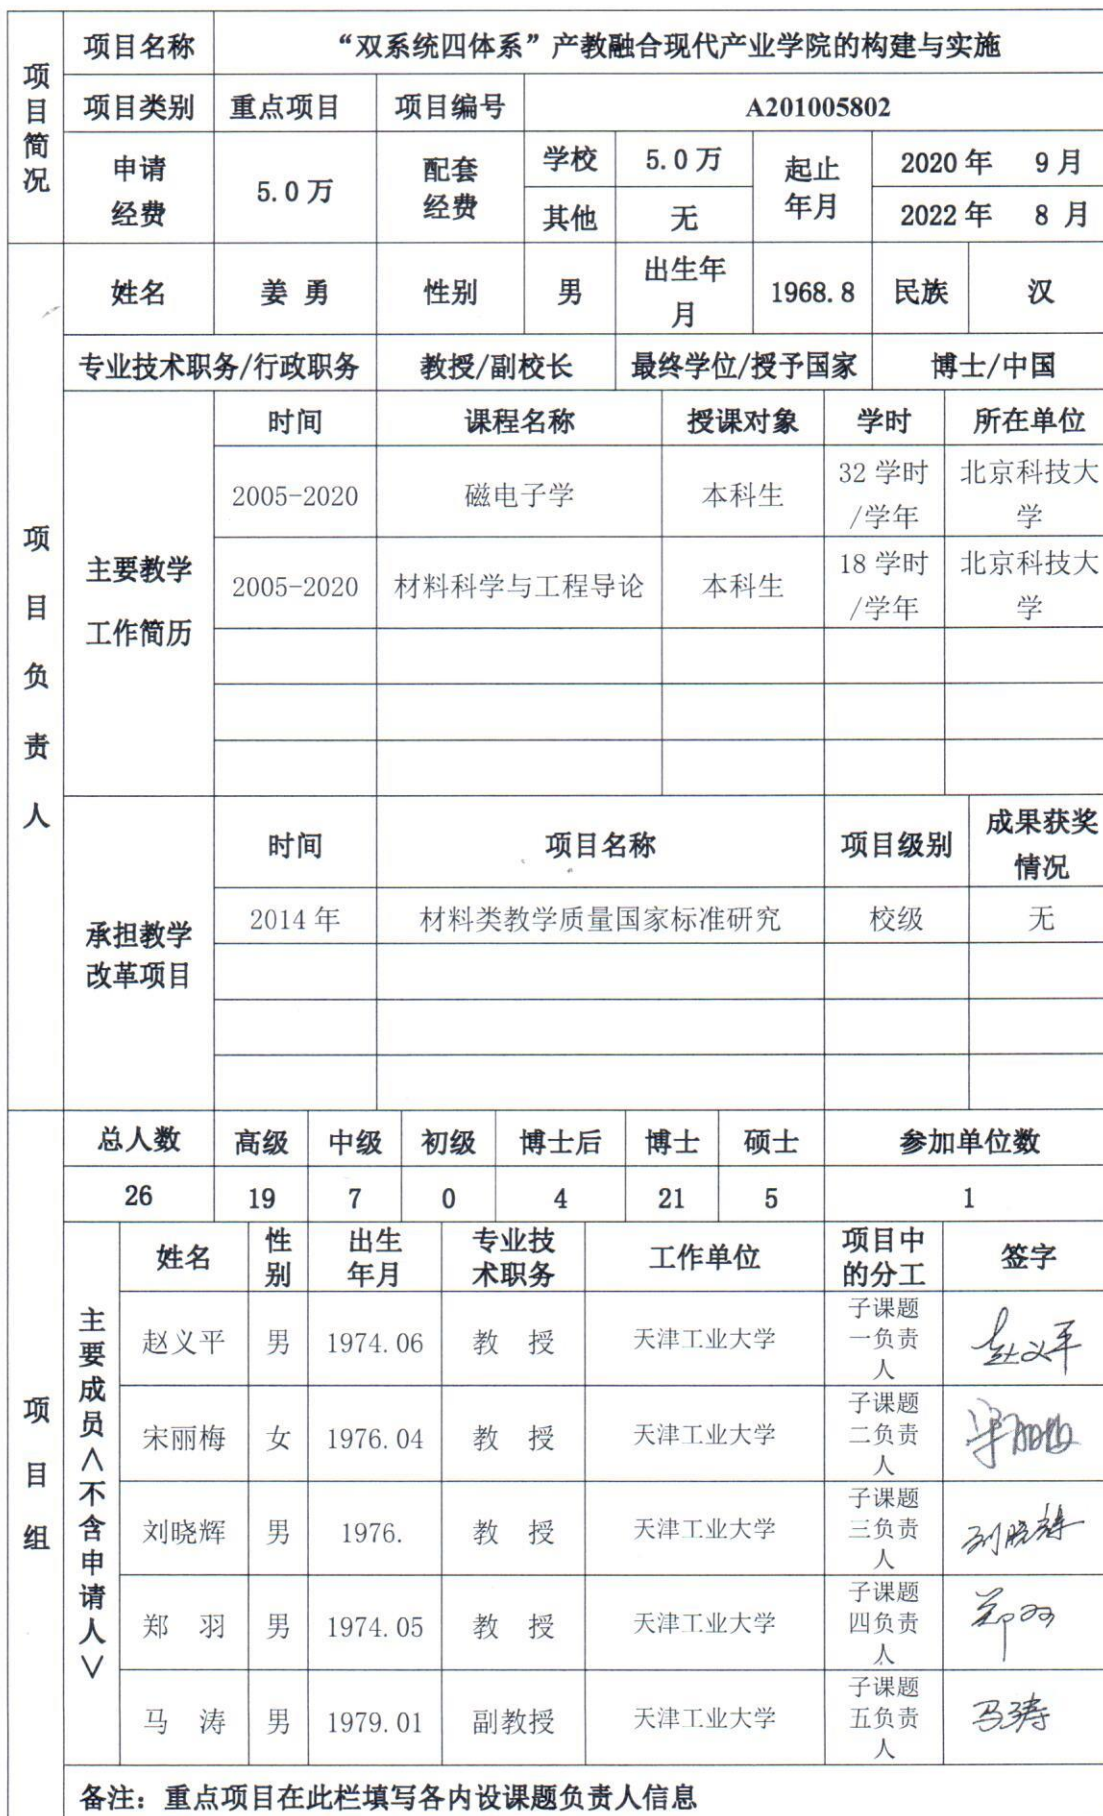 项目简况
项目名称 “双系统四体系”产教融合现代产业学院的构建与实施
项目类别 重点项目 项目编号 A201005802
申请经费 5.0万 配套经费 学校 5.0万 起止年月 2020年 9月
其他 无 2022年 8月
项目负责人
姓名 姜 勇 性别 男 出生年月 1968.8 民族 汉
专业技术职务/行政职务 教授/副校长 最终学位/授予国家 博士/中国
主要教学
工作简历
时间 课程名称 授课对象 学时 所在单位
2005-2020 磁电子学 本科生 32 学时/学年 北京科技大学
2005-2020 材料科学与工程导论 本科生 18 学时/学年 北京科技大学
承担教学
改革项目
时间 项目名称 项目级别 成果获奖情况
2014 年 材料类教学质量国家标准研究 校级 无
项目组
总人数 高级 中级 初级 博士后 博士 硕士 参加单位数
26 19 7 0 4 21 5 1
主要成员<不含申请人>
姓名 性别 出生年月 专业技术职务 工作单位 项目中的分工 签字
赵义平 男 1974.06 教 授 天津工业大学 子课题一负责人 赵义平
宋丽梅 女 1976.04 教 授 天津工业大学 子课题二负责人
刘晓辉 男 1976. 教 授 天津工业大学 子课题三负责人 刘晓辉
郑 羽 男 1974.05 教 授 天津工业大学 子课题四负责人 郑羽
马 涛 男 1979.01 副教授 天津工业大学 子课题五负责人 马涛
备注：重点项目在此栏填写各内设课题负责人信息